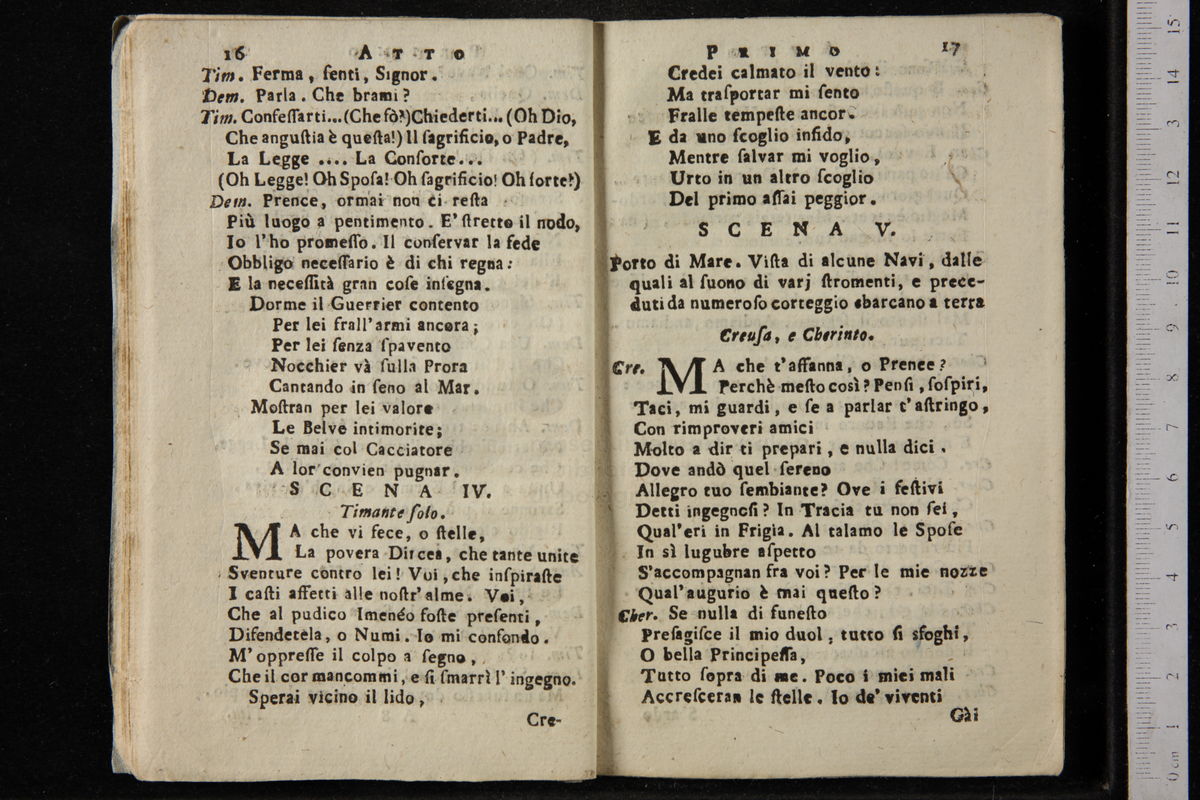 16 ATTO
Tim. Ferma, ſenti, Signor.
Dem. Parla. Che brami?
Tim. Confeſſarti...(Che fò?)Chiederti...(Oh Dio,
Che anguſtia è queſta!) Il ſagrificio, o Padre,
La Legge .... La Conſorte...
(Oh Legge! Oh Spoſa! Oh ſagrificio! Oh ſorte!)
Dem. Prence, ormai non ci reſta
Più luogo a pentimento. E' ſtretto il nodo,
Io l'ho promeſſo. Il conſervar la fede
Obbligo neceſſario è di chi regna:
E la neceſſità gran coſe inſegna.
Dorme il Guerrier contento
Per lei frall'armi ancora;
Per lei ſenza ſpavento
Nocchier và ſulla Prora
Cantando in ſeno al Mar.
Moſtran per lei valore
Le Belve intimorite;
Se mai col Cacciatore
A lor convien pugnar.
SCENA IV.
Timante ſolo.
MA che vi fece, o ſtelle,
La povera Dircea, che tante unite
Sventure contro lei! Voi, che inſpiraſte
I caſti affetti alle noſtr'alme. Voi,
Che al pudico Imenéo foſte preſenti,
Difendetela, o Numi. Io mi confondo.
M'oppreſſe il colpo a ſegno,
Che il cor mancommi, e ſi ſmarrì l'ingegno.
Sperai vicino il lido,
Cre-
PRIMO 17
Credei calmato il vento:
Ma traſportar mi ſento
Fralle tempeſte ancor.
E da uno ſcoglio infido,
Mentre ſalvar mi voglio,
Urto in un altro ſcoglio
Del primo aſſai peggior.
SCENA V.
Porto di Mare. Viſta di alcune Navi, dalle
quali al ſuono di varj ſtromenti, e prece-
duti da numeroſo corteggio sbarcano a terra
Creuſa, e Cherinto.
Cre. MA che t'affanna, o Prence?
Perchè meſto così? Penſi, ſoſpiri,
Taci, mi guardi, e ſe a parlar t'aſtringo,
Con rimproveri amici
Molto a dir ti prepari, e nulla dici.
Dove andò quel ſereno
Allegro tuo ſembiante? Ove i feſtivi
Detti ingegnoſi? In Tracia tu non ſei,
Qual'eri in Frigia. Al talamo le Spoſe
In sì lugubre aſpetto
S'accompagnan fra voi? Per le mie nozze
Qual'augurio è mai queſto?
Cher. Se nulla di funeſto
Preſagiſce il mio duol, tutto ſi sfoghi,
O bella Principeſſa,
Tutto ſopra di me. Poco i miei mali
Accreſceran le ſtelle. Io de' viventi
Gài